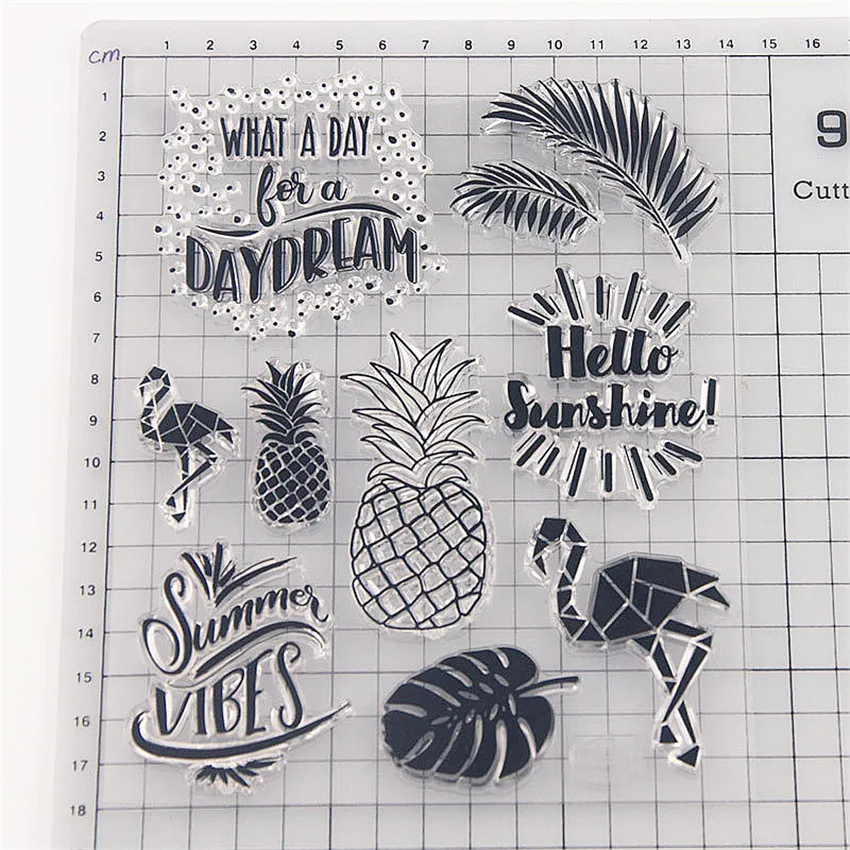 cm
1 2 3 4 5 6 7 8 9 10 11 12 13 14 15 16
1
2
3
4
5
6
7
8
9
10
11
12
13
14
15
16
17
18
WHAT A DAY
for a
DAYDREAM
9
Cutt
Hello
Sunshine!
Summer
VIBES